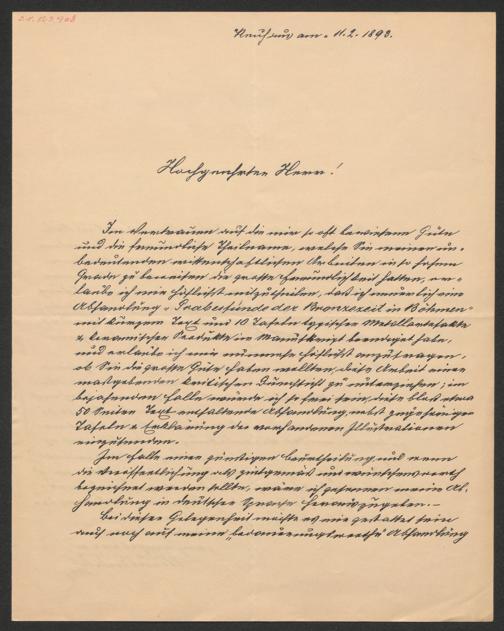 Neuhaus am 11.2.1893.
Hochgeehrter Herr!
Im Vertrauen auf die mir so oft bewiesene Güte
und die freundliche Theilname, welche Sie meinen un-
bedeutenden wissenschaftlichen Arbeiten in so hohem
Grade zu beweisen die große Freundlichkeit hatten, er-
laube ich mir höflichst mitzutheilen, daß ich neuerlich eine
Abhandlung „Grabesfunde der Bronzezeit in Böhmen"
mit kurzem Text und 10 Tafeln typischer Metallartefakte
& keramischer Produkte im Manuskript beendiget habe,
und erlaube ich mir nunmehr höflichst anzufragen,
ob Sie die große Güte haben wollten, diese Arbeit einer
maßgebenden kritischen Durchsicht zu unterziehen; im
bejahenden Falle würde ich so frei sein, diese bloß etwa
50 Seiten Text enthaltende Abhandlung, nebst zugehörigen
Tafeln & Erklärung der vorhandenen Illustrationen
einzusenden.
Im Falle einer günstigen Beurtheilung und wenn
die Veröffentlichung als zeitgemäß und wünschenswerth
bezeichnet werden sollte, wäre ich gesonnen meine Ab-
handlung in deutscher Sprache herauszugeben.-
Bei dieser Gelegenheit möchte es mir gestattet sein
auch noch auf meine Abhandlung